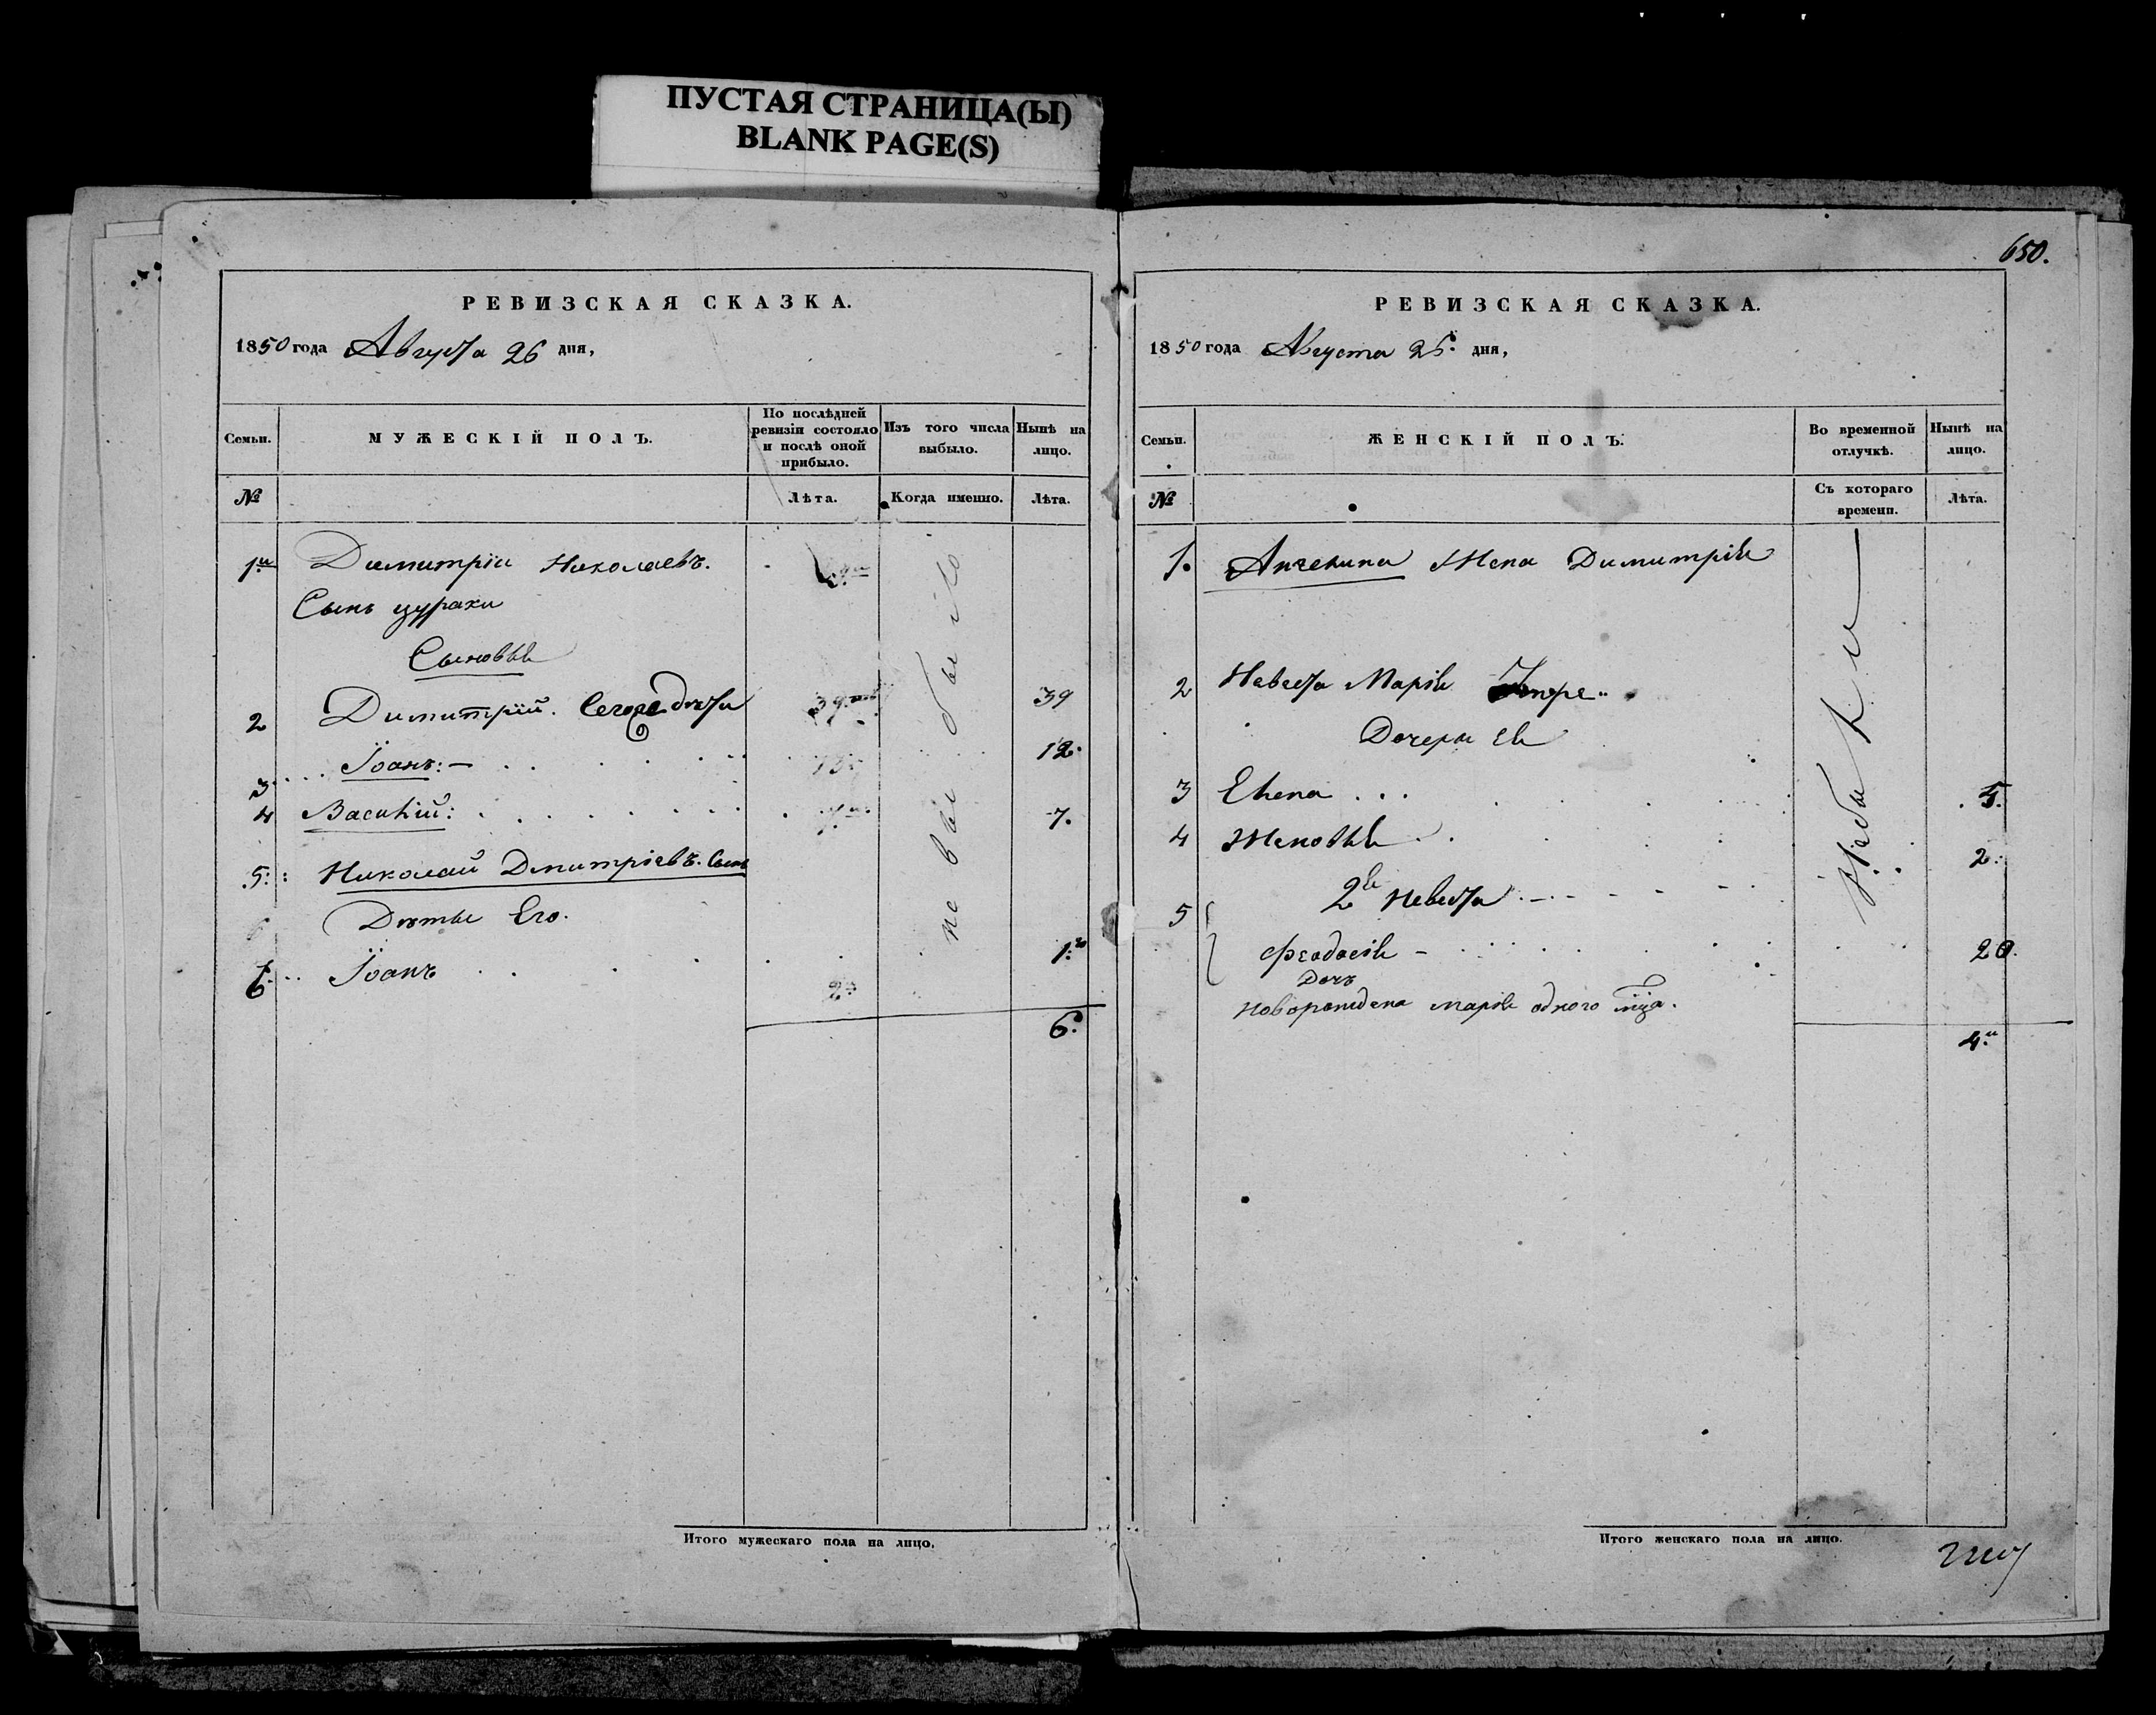 ПУСТАЯ СТРАНИЦА(Ы)
BLANK PAGE(S)
РЕВИЗСКАЯ СКАЗКА.
1850 года Августа 26 дня,
Семьи.
МУЖЕСКІЙ ПОЛЪ.
По послѣдней ревизіи состояло и послѣ оной прибыло.
Изъ того числа выбыло.
Нынѣ на лицо.
№
Лѣта.
Когда именно.
Лѣта.
1й Димитріи Николаевъ.
Сынъ цураки
Сыновья
2 Димитрій. 39 39
3 Іоанъ: 12.
4 Василій: 7.
5: Николай Дмитріевъ. Сынъ
Дѣты Его. 1:
6 Іоанъ 2
6.
не было
Итого мужескаго пола на лицо.
650.
РЕВИЗСКАЯ СКАЗКА.
1850 года Августа 26 дня,
Семьи.
ЖЕНСКІЙ ПОЛЪ.
Во временной отлучкѣ.
Нынѣ на лицо.
№
Съ котораго времени.
Лѣта.
1. Ангелина Жена Димитрія
2 Невеста Марія
Дочеры Ея
3 Елена 5.
4 Женовья 2.
2я Невеста
5 Феодосія 20.
Дочъ
Новорождена Марія одного мца.
4
Итого женскаго пола на лицо.